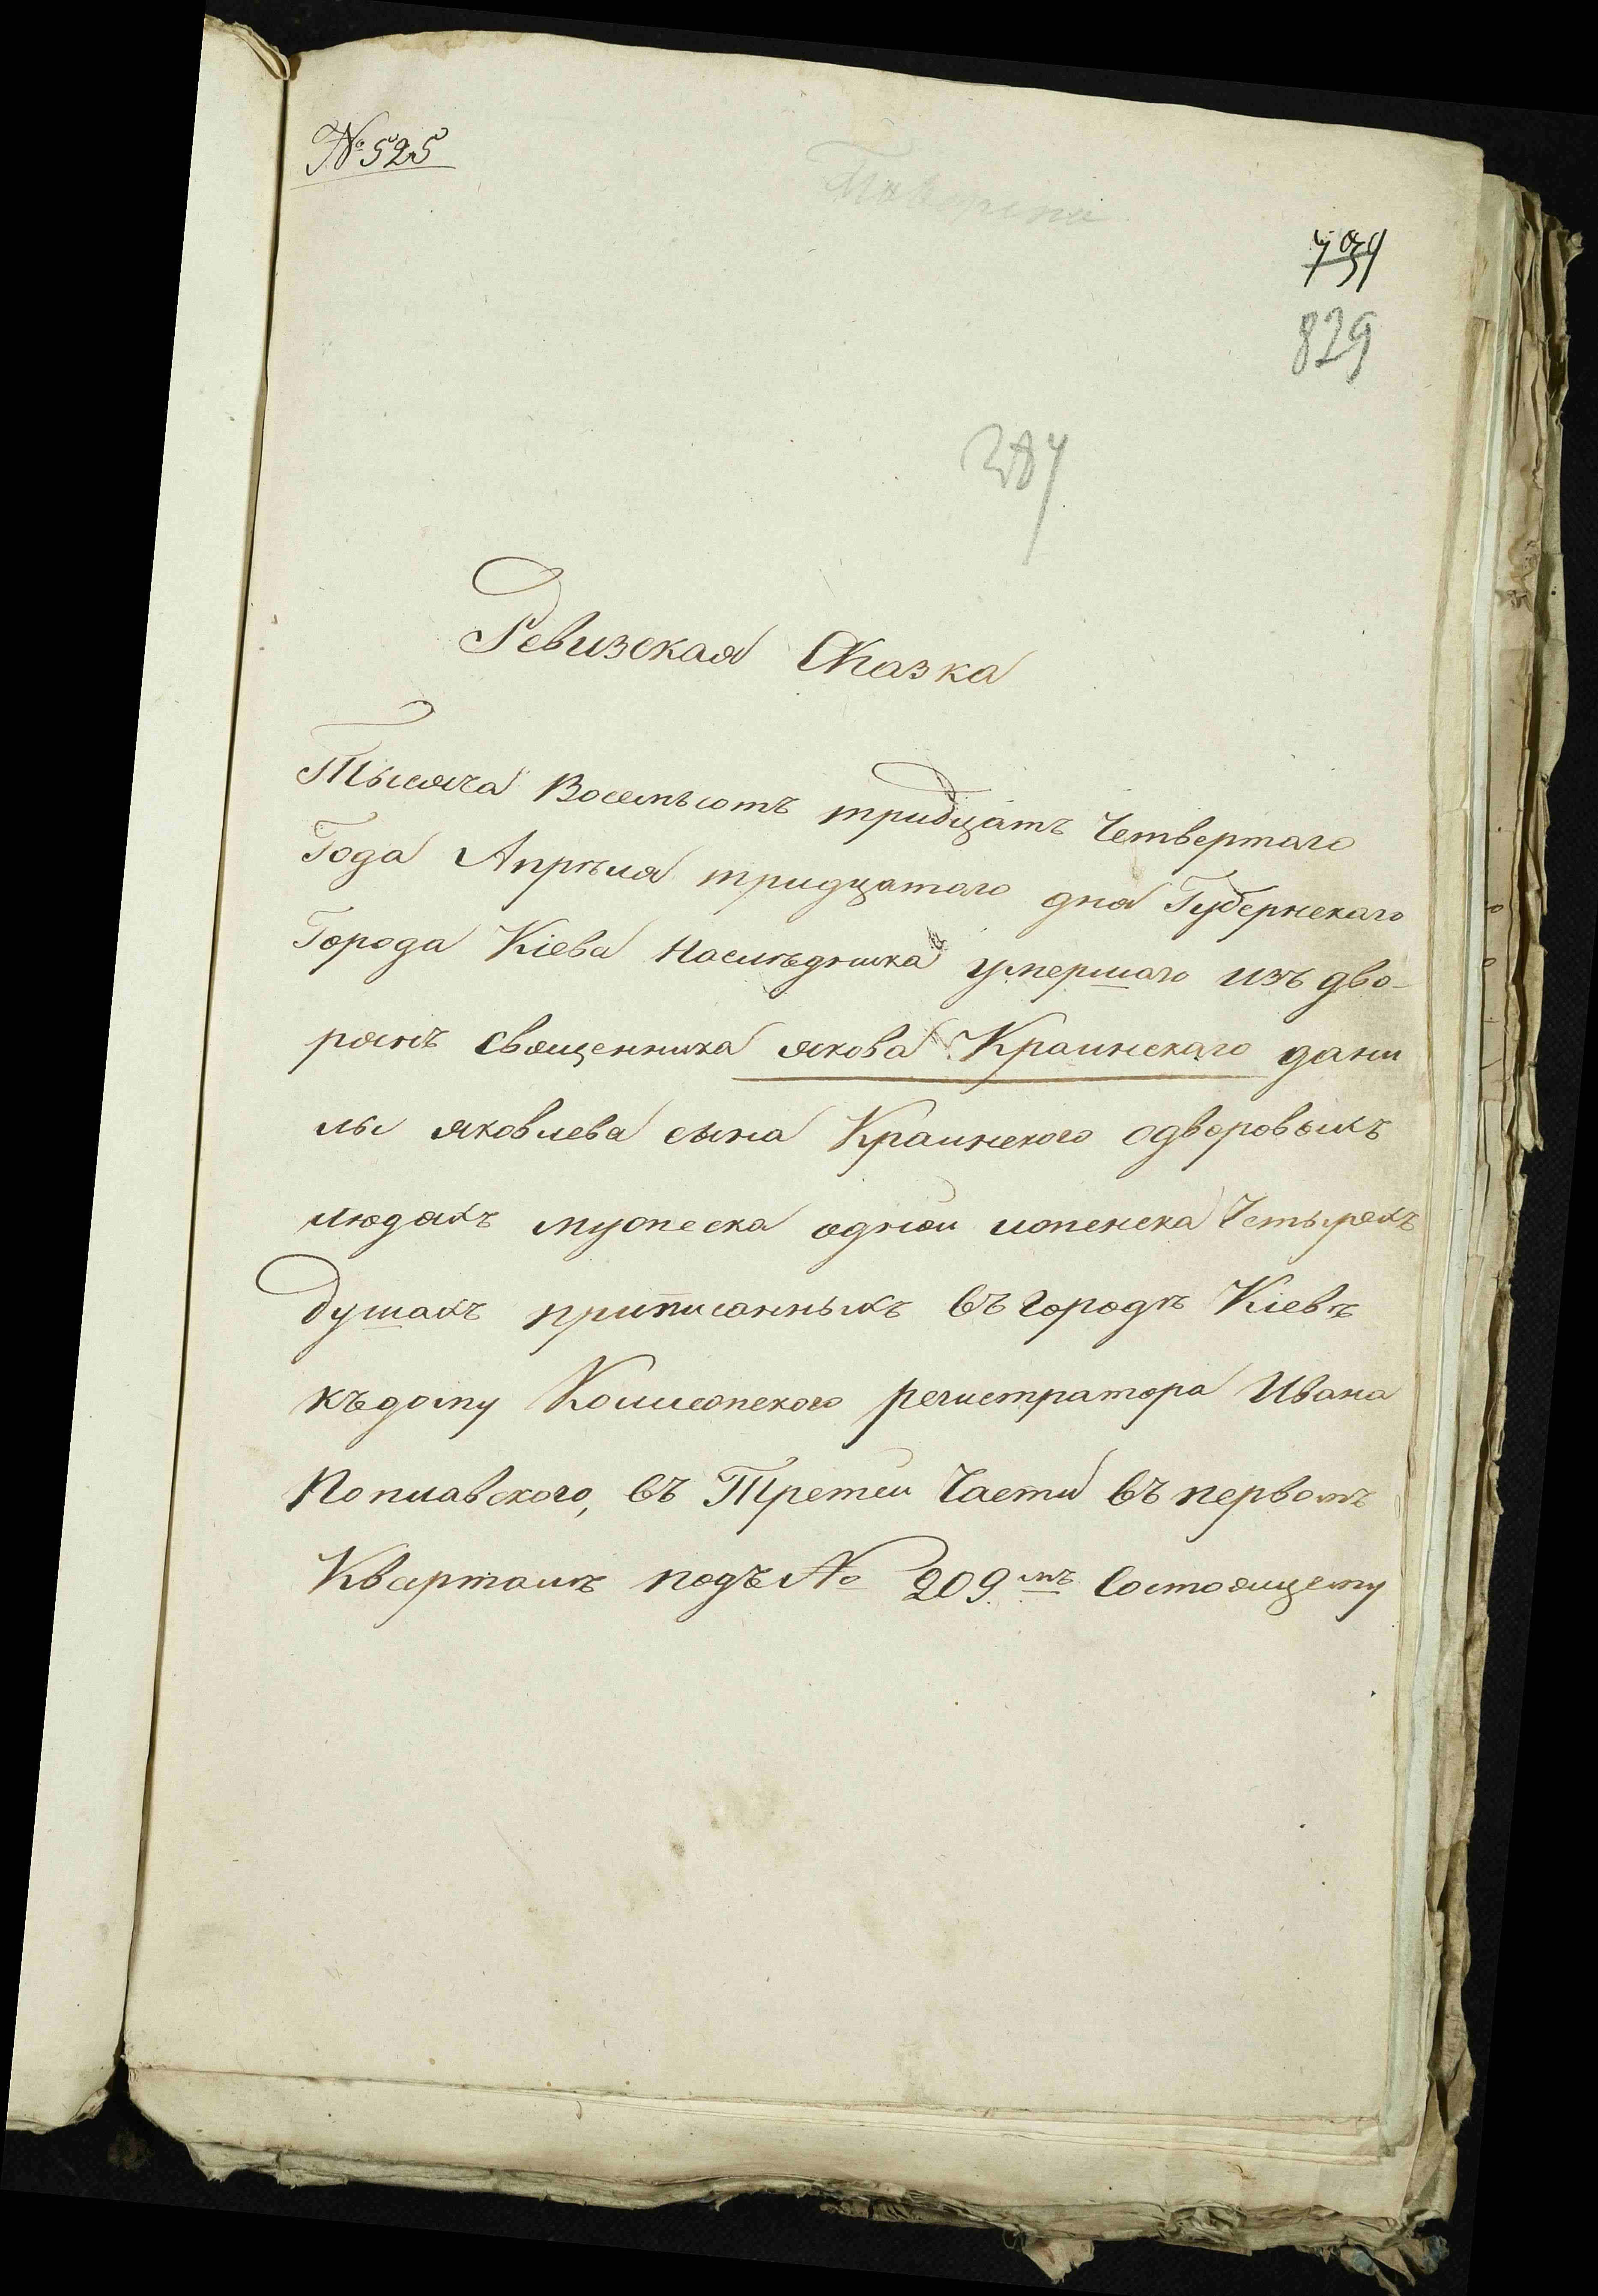 № 525
829
Ревизская Сказка
Тысяча Восемьсотъ тридцать Четвертаго
Года Апрѣля тридцатаго дня Губернскаго
Города Кіева Наслѣдника умершаго изъ дво-
рянъ священника якова Краинскаго дани
лы яковлева сына Краинского одворовыхъ
людяхъ мужеска одной иженска Четырехъ
душахъ приписанныхъ въ городѣ Кіевѣ
къдому Коллежского регистратора Ивана
Поплавского, въ Третей Части въ первомъ
Кварталѣ подъ № 209.мъ Состоящему